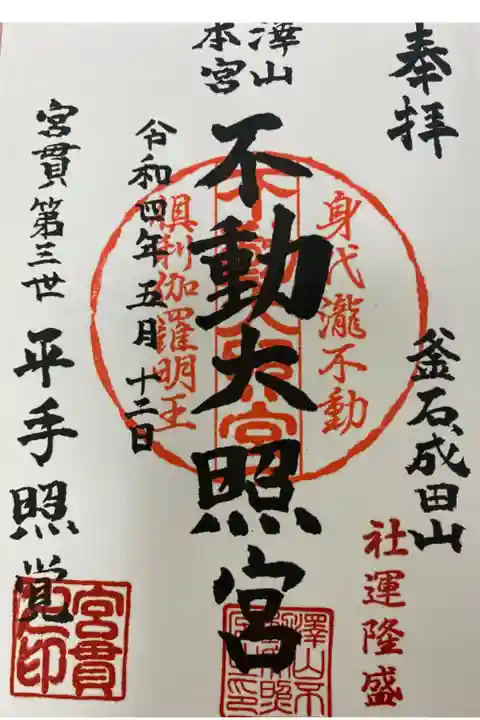 奉拝
釜石成田山
社運隆盛
澤山
本宮
不動大照宮
身代瀧不動
倶利伽羅明王
令和四年五月十二日
宮貫第三世 平手照覚
宮貫
之印